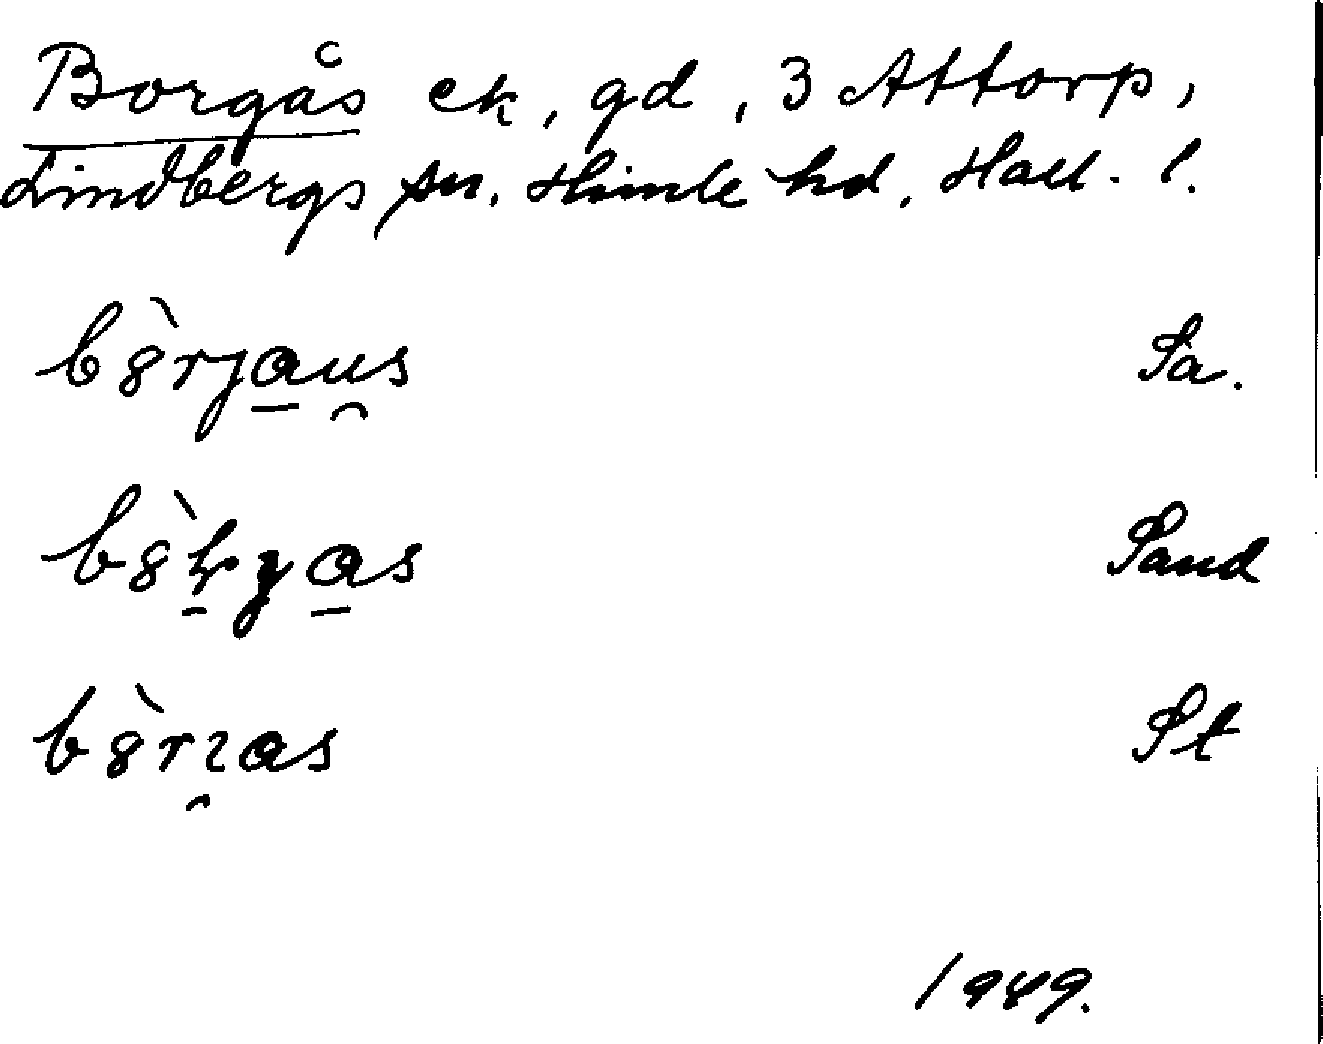 Borgås ek, gd, 3 Attorp,
Lindbergs sn. Himle hd. Hall. l.
Sa.
Sand
St
1949.